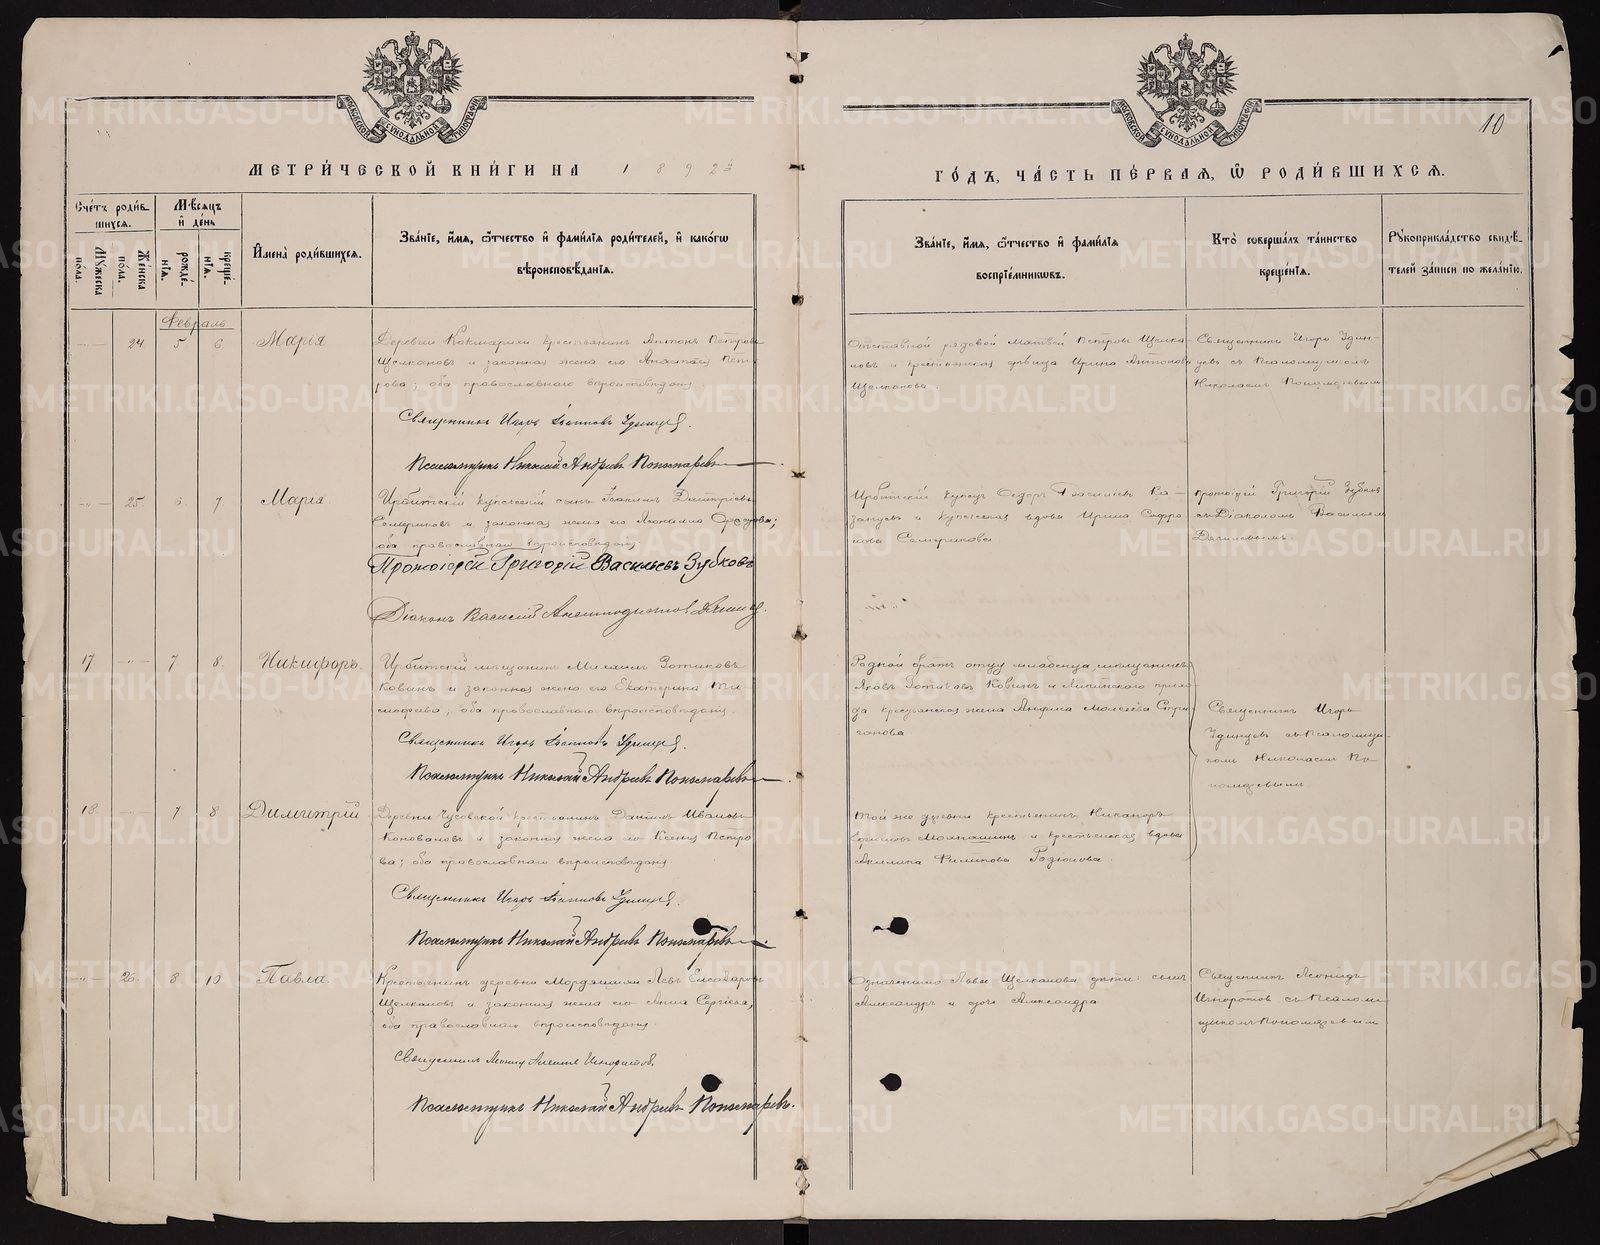 МЕТРИ́ЧЕСКОЙ КНИ́ГИ НА 1892й
ГО́ДЪ, ЧА́СТЬ ПЕ́РВАЯ, Ѡ РОДИ́ВШИХСЯ.
10
Сче́тъ роди́в-
шихся.
Мѣ́сяцъ
и҆ де́нь
Мꙋ́жеска
по́ла.
Же́нска
по́ла.
рожде́-
нїя.
креще́-
нїя.
И҆мена̀ роди́вшихся.
Зва́нїе, и҆́мя, ѻ҆́тчество и҆ фами́лїя роди́телей, и҆ како́гѡ
вѣроисповѣ́данїя.
Зва́нїе, и҆́мя, ѻ҆́тчество и҆ фами́лїя
воспрїе́мниковъ.
Кто̀ соверша́лъ та́инство
креще́нїя.
Рꙋкоприкла́дство свидѣ́-
телей за́писи по жела́нїю.
Февраль
24 5 6 Марія
Деревни Кокшарихи крестьянинъ Антонъ Петровъ
Щелкановъ и законная жена его Анастасія Пет-
рова; оба православнаго вѣроисповѣданія.
Священникъ Игорь Іоанновъ Удинцевъ.
Псаломщикъ Николай Андреевъ Пономаревъ
Отставной рядовой Матвей Петровъ Щелка-
новъ и крестьянская дѣвица Ирина Антонова
Щелканова.
Священникъ Игорь Удин-
цевъ съ Псаломщикомъ
Николаемъ Пономаревымъ
25. 6 7. Марія
Ирбитскій купеческій сынъ Іоакимъ Димитріевъ
Семериковъ и законная жена его
оба православнаго вѣроисповѣданія.
Протоіерей Григорій Васильевъ Зубковъ
Діаконъ Василій
Ирбитскій купецъ Ѳедоръ Васильевъ Ка-
занцевъ и купеческая вдова Ирина Софро-
нова Семерикова
Протоіерей Григорій Зубковъ
съ Діакономъ Василіемъ
17 7 8. Никифоръ.
Ирбитскій мѣщанинъ Михаилъ Зотиковъ
Ковинъ и законная жена его Екатерина Ти-
моѳеева, оба православнаго вѣроисповѣданія.
Священникъ Игорь Іоанновъ Удинцевъ.
Псаломщикъ Николай Андреевъ Пономаревъ
Родной братъ отцу младенца, мѣщанинъ
Яковъ Зотиковъ Ковинъ и Липинскаго прихо-
да крестьянская жена Анфиса Моисеева Стри-
ганова
Священникъ Игорь
Удинцевъ съ Псаломщи-
комъ Николаемъ По-
номаревымъ
18 7 8 Димитрій
Деревни Чусовской крестьянинъ Даніилъ Ивановъ
Коноваловъ и законная жена его Ксенія Петро-
ва; оба православнаго вѣроисповѣданія.
Священникъ Игорь Іоанновъ Удинцевъ.
Псаломщикъ Николай Андреевъ Пономаревъ
Той же деревни крестьянинъ Никаноръ
и крестьянская вдова
Акилина Филипова Родіонова.
26. 8 10 Павла.
Крестьянинъ деревни Мордяшихи Левъ Елеазаровъ
Щелкановъ и законная жена его Анна Сергіева,
оба православнаго вѣроисповѣданія.
Священникъ Леонидъ
Псаломщикъ Николай Андреевъ Пономаревъ.
Означеннаго Льва Щелканова дѣти: сынъ
Александръ и дочь Александра
Священникъ Леонидъ
съ Псалом-
щикомъ Пономаревымъ
METRIKI.GASO-URAL.RU